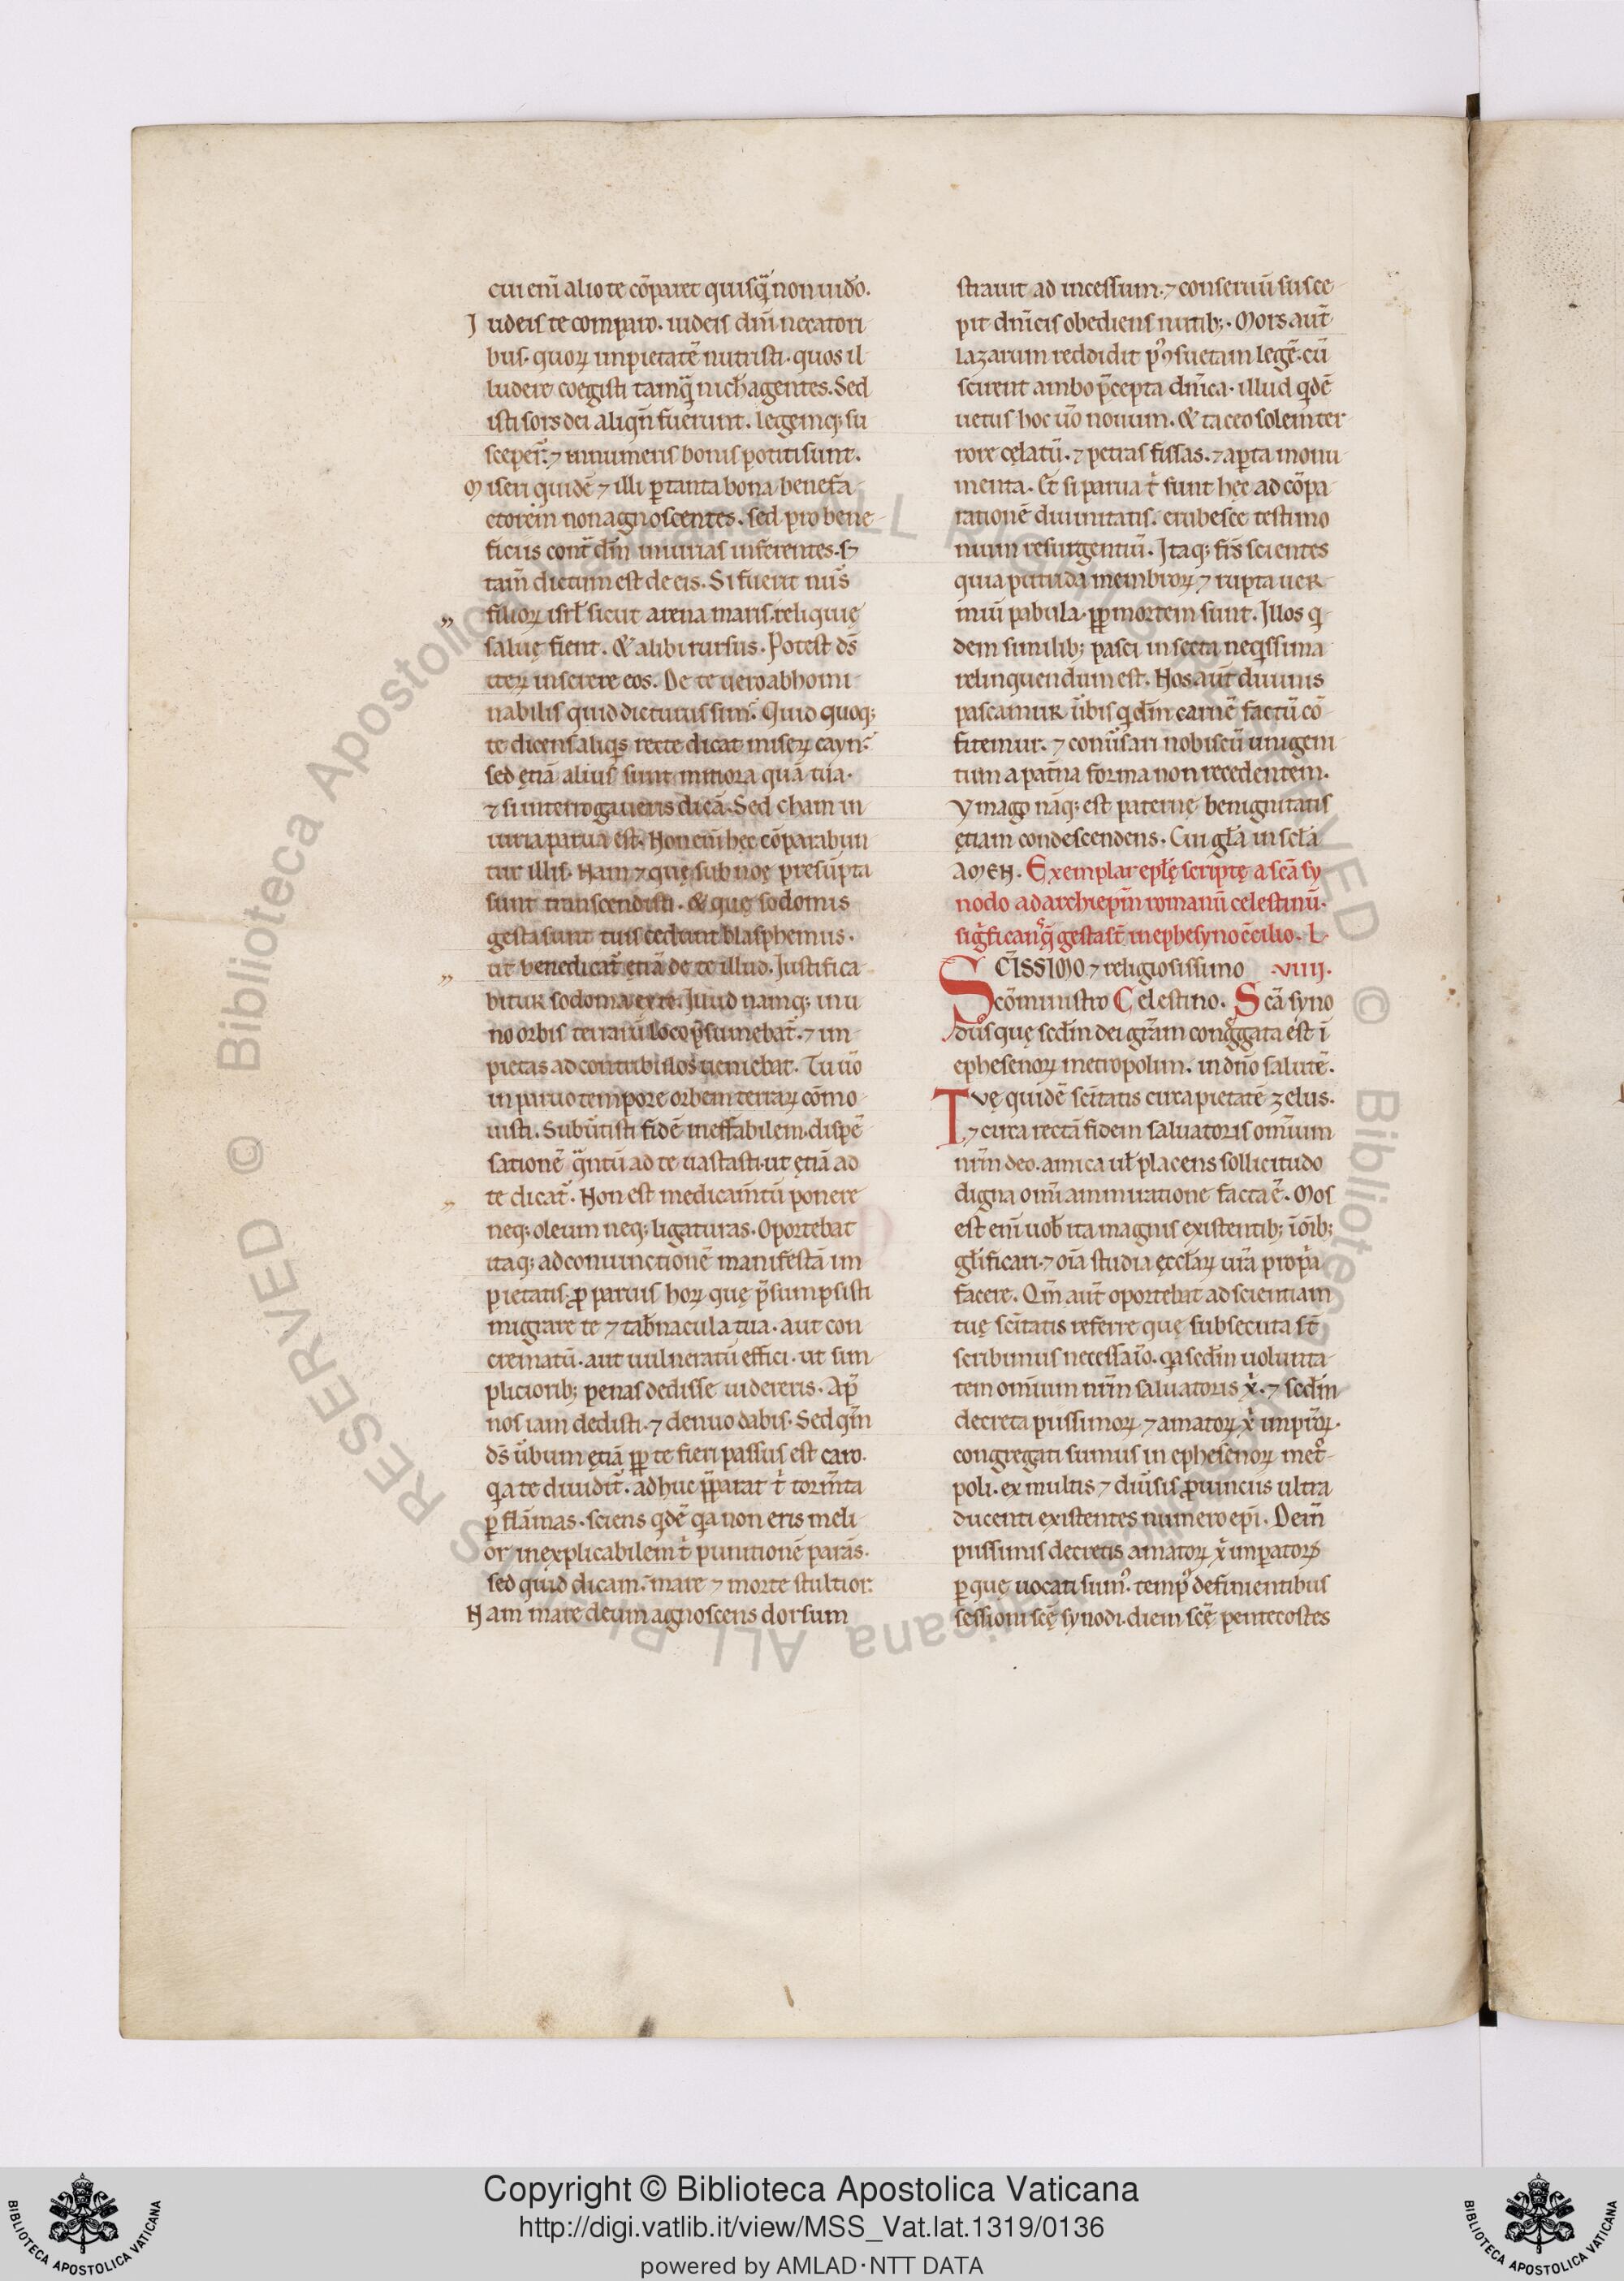 cui eni͂ alio te co͂paret quisq̃ non uido.
Iudeis te comparo. iudeis dm̃ necatori
bus. quoꝝ impietatẽ nutristi. quos il
ludere coegisti tamq̃ nich̃ agentes. Sed
isti sors dei aliqñ fuerunt. legemq; su
sceper̃. ⁊ innumeris bonis potiti sunt.
Miseri quidẽ ⁊ illi ꝑ tanta bona benefa
ctorem non agnoscentes. sed pro bene
ficiis cont̃ dm̃ iniurias inferentes. sꝫ
tam̃ dictum est de eis. Si fuerit nũs
filioꝝ isrł sicut arena maris. reliquię
saluę fient. & alibi rursus. Potest ds̃
iteꝝ inserere eos. De te uero abhomi
nabilis quid dicturus sum. Quid quoq;
te dicens aliq̃s recte dicat miseꝝ cayn.
sed ętiã alius sunt mitiora quã tua.
⁊ si interrogaueris dicã. Sed cham in
iuria parua est. Non eni͂ hęc cõparabun
tur illis. Nam ⁊ quę sub noę presũpta
sunt transcendisti. & quę sodomis
gesta sunt tuis cedunt blasphemiis.
ut uenedicat̃ ętiã de te illud. Iustifica
bitur sodoma ex te. Illud namq; in u
no orbis terrarũ loco p̃sumebat̃. ⁊ im
pietas ad contribulos ueniebat. Tu uõ
in paruo tempore orbem terrarꝝ cõmo
uisti. Subũtisti fidẽ ineffabilem. dispẽ
sationẽ q̃ntũ ad te uastasti. ut ętiã ad
te dicat̃. Non est medicam̃tũ ponere
neq; oleum neq; ligaturas. Oportebat
itaq; ad coniunctionẽ manifestã im
pietatis. ꝓ paruis hoꝝ quę p̃sumpsisti
migrare te ⁊ tab̃nacula tua. aut con
crematũ. aut uulneratũ effici. ut sim
plicioribꝫ penas dedisse uidereris. Ap̃
nos iam dedisti. ⁊ denuo dabis. Sed qm̃
ds̃ ũbum ętiã ꝓp te fieri passus est caro.
qa te diuidit̃. adhuc p̃parat t̃ torm̃ta
ꝑ flãmas. sciens qdẽ qa non eris meli
or inexplicabilem t̃ punitionẽ parãs.
sed quid dicam. mare ⁊ morte stultior.
Nam mare deum agnoscens dorsum
strauit ad incessum. ⁊ conseruũ susce
pit dm̃cis obediens nutibꝫ. Mors aut̃
lazarum reddidit p̃ ꝯsuetam legẽ. cũ
scirent ambo p̃cepta dm̃ca. illud qdẽ
uetus hoc uõ nouum. & taceo solem ter
rore cęlatũ. ⁊ petras fissas. ⁊ aꝑta monu
menta. Et si parua t̃ sunt hęc ad cõpa
rationẽ diuinitatis. erubesce testimo
nium resurgentiũ. Itaq; frs̃ scientes
quia putrida membroꝝ ⁊ rupta uer
miũ pabula. ꝓp mortem sunt. Illos qi
dem similibꝫ pasci in secta neq̃ssima
relinquendum est. Nos aut̃ diuinis
pascamur ũbis q dm̃ carnẽ factũ cõ
fitemur. ⁊ conũsari nobiscũ unigeni
tum a pat̃na forma non recedentem.
Ymago nãq; est paternę benignitatis
ętiam condescendens. Cui glã in sclã
AMEN. Exemplar eplę scriptę a scã sy
nodo ad archiepm̃ romanũ celestinũ.
sig̃ficanq̃ gesta st̃ in ephesyno cẽcilio. L.
SCĨSSIMO ⁊ religiosissimo VIIII.
cõministro Celestino. Scã syno
dus quę scdm̃ dei grãm cong̃gata est ĩ
ephesenoꝝ metropolim. in dño salutẽ.
Tvę quidẽ scĩtatis circa pietatẽ zelus.
⁊ circa rectã fidem saluatoris omĩum
nrm̃ deo. amica uł placens sollicitudo
digna om̃i ammiratione facta ẽ. Mos
est eni͂ uob̃ ita magnis existentibꝫ ĩ oĩbꝫ
glificari. ⁊ oĩa studia ęccl̃aꝝ uira propa
facere. Qm̃ aut̃ oportebat ad scientiam
tuę scĩtatis referre quę subsecuta st̃
scribimus necessario. qa scdm̃ uolunta
tem omĩum nrm̃ saluatoris xp̃i. ⁊ scdm̃
decreta piissimoꝝ ⁊ amatoꝝ xp̃i impr̃oꝝ.
congregati sumus in ephesenoꝝ met̃
poli. ex multis ⁊ diũsis ꝓuinciis ultra
ducenti existentes numero epi͂. Dein̄
piissimis decretis amatoꝝ xp̃i imꝑatoꝝ
ꝑ quę uocati sum⁹. temp⁹ definientibus
sessioni scę̃ synodi. diem scę̃ pentecostes
Copyright © Biblioteca Apostolica Vaticana
http://digi.vatlib.it/view/MSS_Vat.lat.1319/0136
powered by AMLAD·NTT DATA
BIBLIOTECA APOSTOLICA VATICANA
BIBLIOTECA APOSTOLICA VATICANA